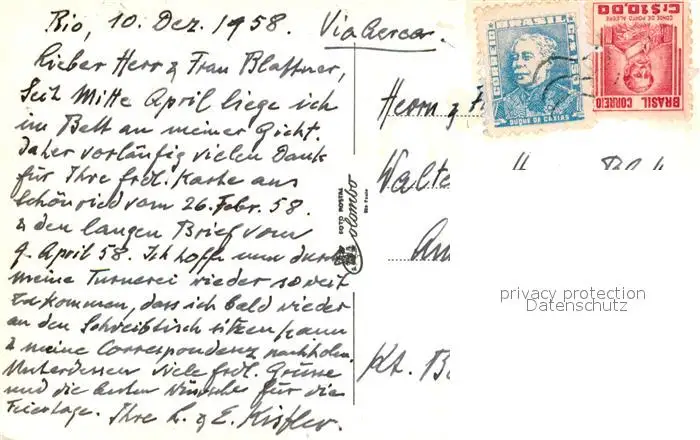 Rio, 10. Dez. 1958. Via aerea.
Lieber Herr & Frau Blattner,
Seit Mitte April liege ich
im Bett an meiner Gicht.
Daher vorläufig vielen Dank
für Ihre frdl. Karte aus
Schönried vom 26. Febr. 58.
& den langen Brief vom
9. April 58. Ich hoffe nun durch
meine Turnerei wieder soweit
zu kommen, dass ich bald wieder
an den Schreibtisch sitzen kann
& meine Correspondenz nachholen.
Unterdessen viele frdl. Grüsse
und die besten Wünsche für die
Feiertage. Ihre L. & E. Kistler.
FOTO POSTAL
Colombo
São Paulo
Herrn & F
Walte
Am
Kt. B
BRASIL
CORREIO
DUQUE DE CAXIAS
CONDE DE PORTO ALEGRE
CR$10,00
BRASIL CORREIO
privacy protection
Datenschutz